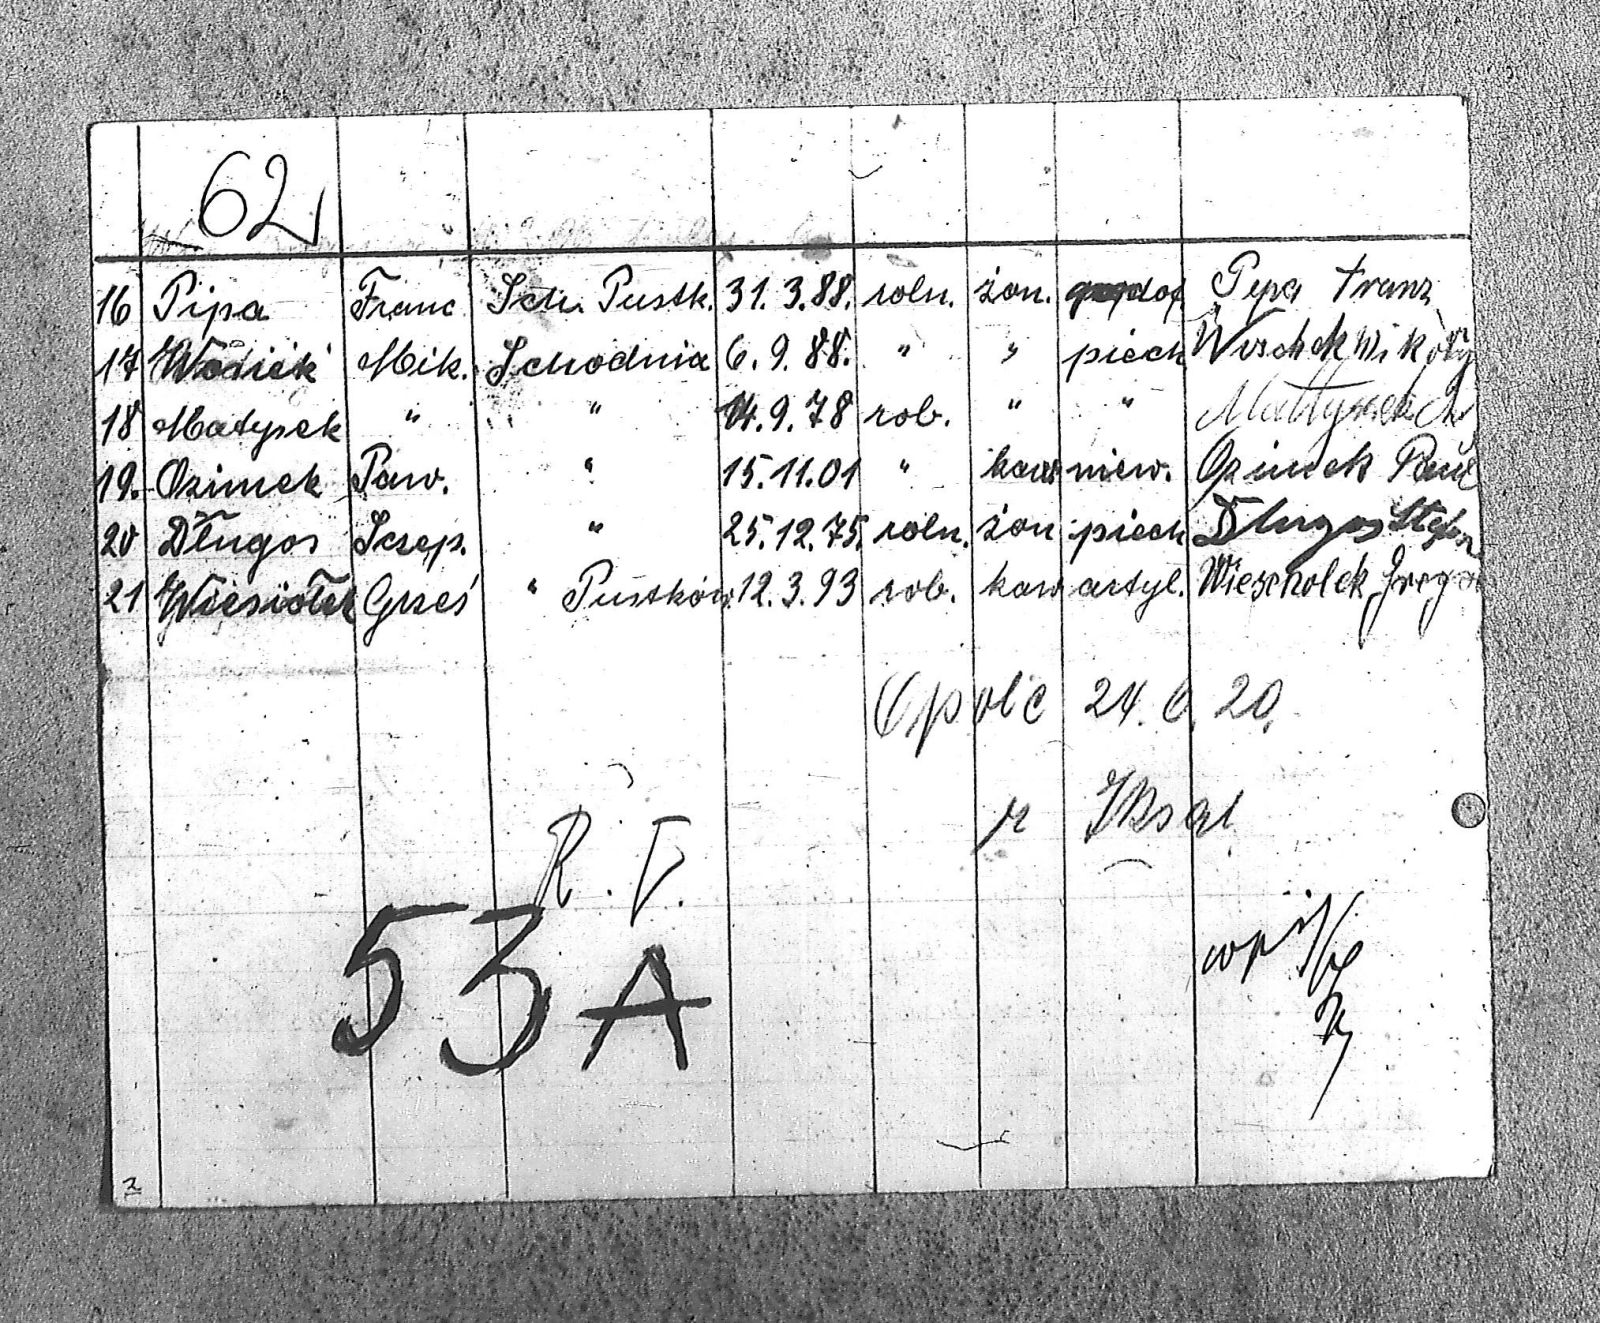 62
16 Pipa Franc Sch. Pustk. 31. 3.88. roln. żon. Pypa Franz
17 Wosiek Mik. Schodnia 6. 9. 88. " " piech
18 Matysek " " 14.9.78 rob. " " Mattyssek
19. Ozimek Paw. " 15.11.01 " kaw niew. Ozimek Paul
20 Długos Sczep. " 25.12.75. roln. żon piech Dlugos Stefan
21 Wiesiołek Grześ " Pustków 12.3.93 rob. kaw artyl. Wiescholek Gregor
Opole 24. 6. 20.
R. V.
53A